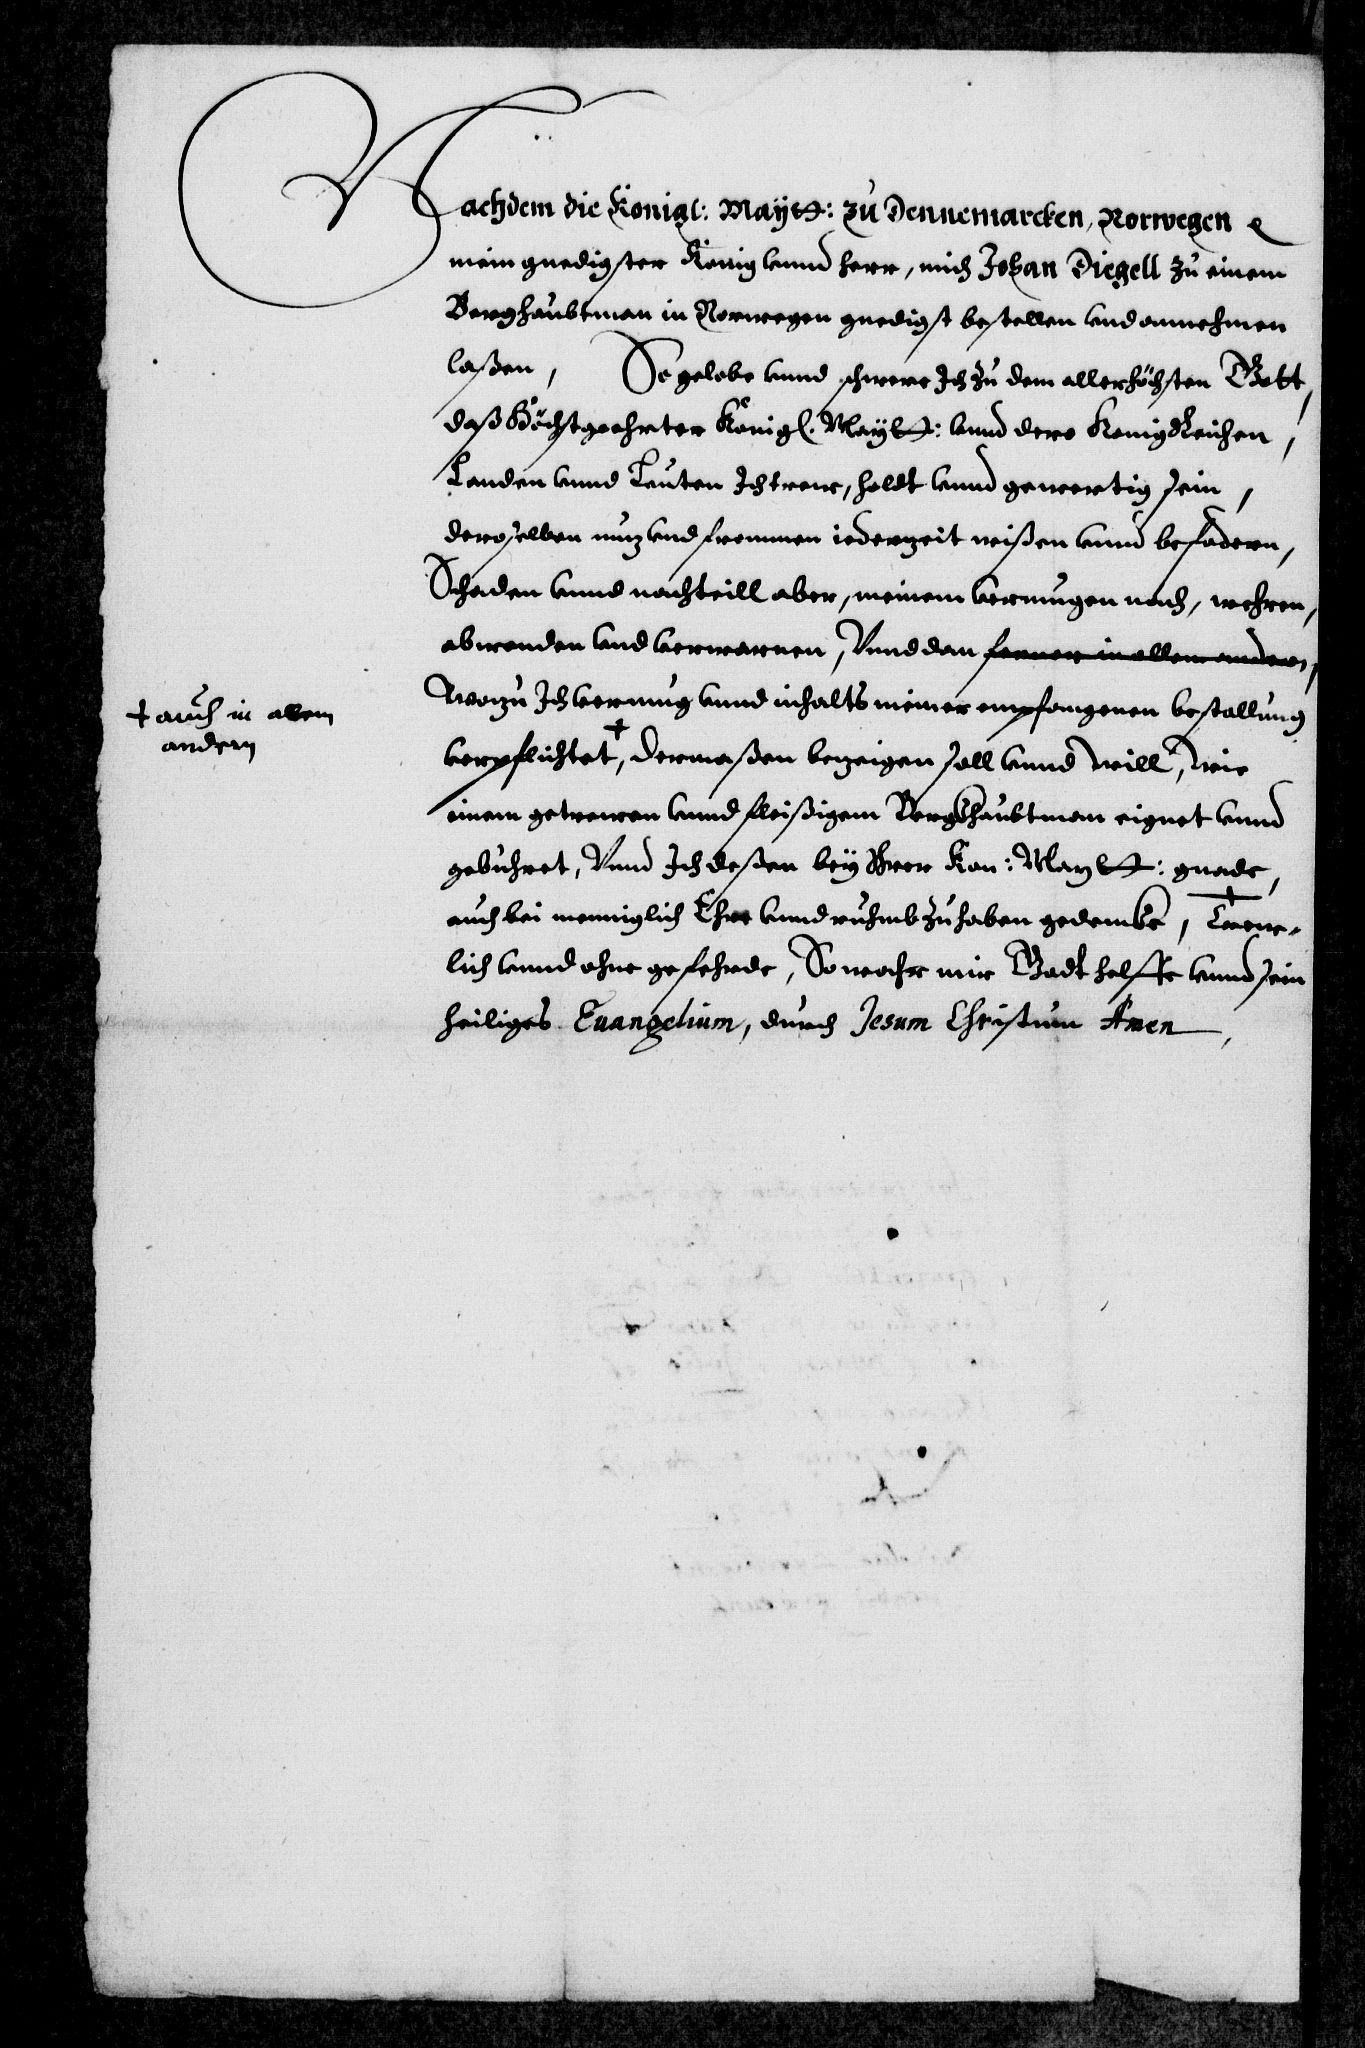 Nachdem die Königl: Maÿtt: zu Dennemarcken, Norwegen &
mein gnedigster König vnnd Herr, mich Johan Diegell zu einem
Berghaubtman in Norwegen gnedigst bestellen vnd annehmen
laßen, So gelobe vnnd schwere Ich zu dem allerhöchsten Gott,
daß Höchstgeehrter Königl. Maÿtt: vnnd dero KönigReichen,
Landen vnnd Leuten Ich trew, holdt vnnd gewertig sein,
deroselben nuz vnd frommen iederzeit wißen vnnd befodern,
Schaden vnnd nachteill aber, meinem vermugen nach, wehren,
abwenden vnd verwarnen, Vnnd dan ferner in allem andern,
Wozu Ich vermug vnnd inhalts meiner empfangenen bestallung
† auch in allem
andern
verpflichtet†, dermaßen bezeigen soll vnnd will, wie
einem getrewen vnnd fleißigem Bergkhaubtman eignet vnnd
gebuhret, Vnnd Ich deßen beÿ Ihrer Kön: Maytt: gnade,
auch bei menniglich Ehre vnnd ruhmb zu haben gedencke, Trew-
lich vnnd ohne gefehrde, So wahr mir Godt helffe vnnd sein
heiliges Euangelium, durch Jesum Christum Amen,